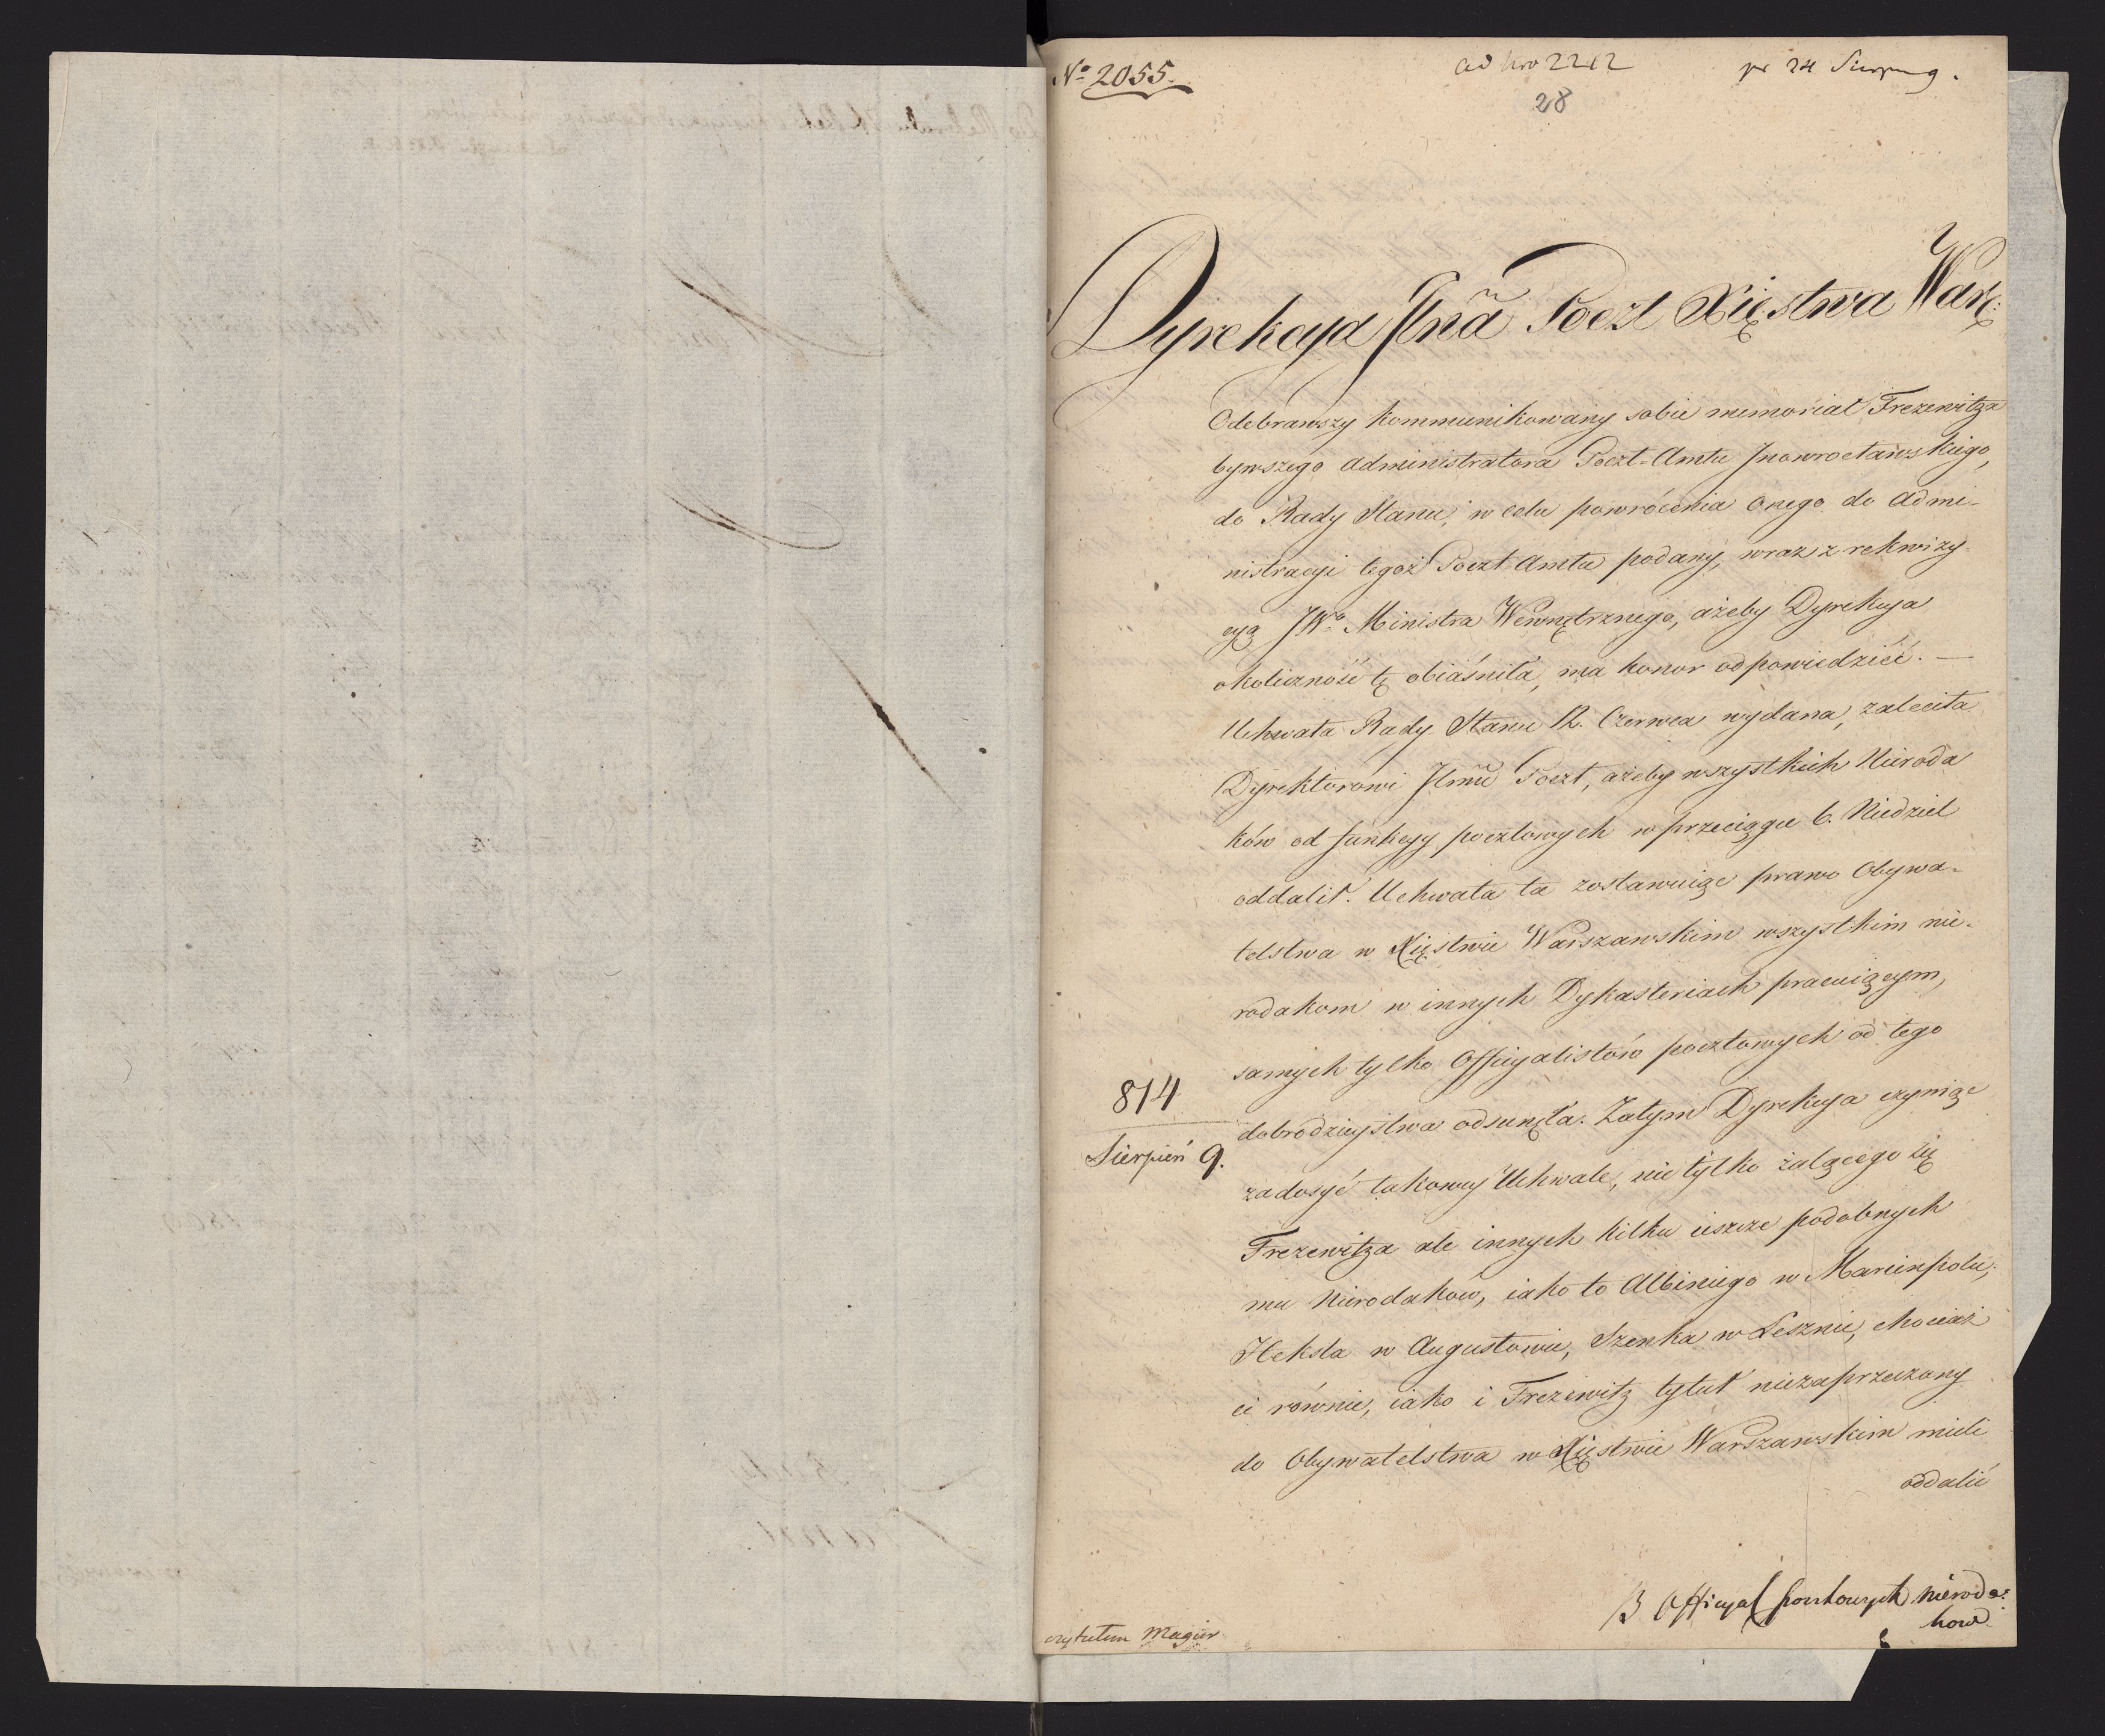 No 2055.
ad Nro 2212
pr 24 Sierpnia 9.
28
Dyrekcya Jlna Poczt Xięstwa War:
Odebrawszy kommunikowany sobie memoriał Frezewitza
bywszego administratora Poczt-Amtu Jnowrocławskiego,
do Rady Stanu, w celu powrócenia onego do admi-
nistracyi tegoż Poczt Amtu podany, wraz z rekwizy-
cyą JWo Ministra Wewnętrznego, ażeby Dyrekcya
okoliczność tę obiaśniła, ma honor odpowiedzieć. —
Uchwała Rady Stanu 12. Czerwca wydana, zaleciła
Dyrektorowi Jlmu Poczt, ażeby wszystkich Nieroda
ków od funkcyy pocztowych w przeciągu 6. Niedziel
oddalił. Uchwała ta zostawuiąc prawo Obywa-
telstwa w Xięstwie Warszawskim wszystkim nie-
rodakom w innych Dykasteriach pracuiącym,
samych tylko Officyalistów pocztowych od tego
dobrodzieystwa odsunęła. Zatym Dyrekcya czyniąc
zadosyć takowey Uchwale, nie tylko żalącego się
Frezewitza ale innych kilku ieszcze podobnych
mu Nierodaków, iako to Albiniego w Marienpolu,
Heksla w Augustowie, Szenka w Lesznie, chociaż
ci równie, iako i Frezewitz tytuł niezaprzeczony
do Obywatelstwa w Xięstwie Warszawskim mieli
oddalić
814
Sierpień 9.
Officyal pocztowych nieroda:
ków